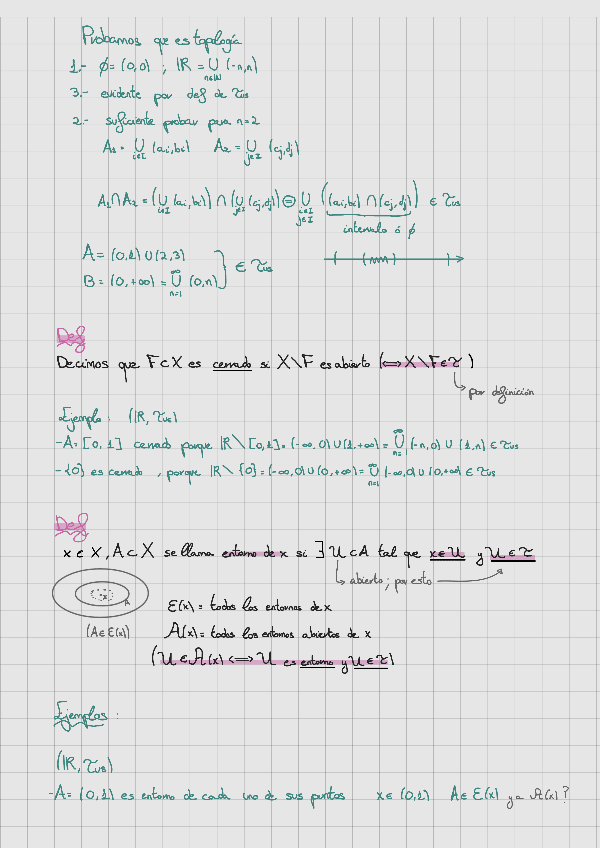 Probamos que es topología
1.- ∅ = (0,0) ; ℝ = ⋃ n∈ℕ (-n,n)
3.- evidente por def de τus
2.- suficiente probar para n=2
A₁ = ⋃ i∈I (ai,bi) A₂ = ⋃ j∈I (cj,dj)
A₁∩A₂ = (⋃ i∈I (ai,bi)) ∩ (⋃ j∈I (cj,dj)) = ⋃ i∈I j∈I ((ai,bi) ∩ (cj,dj)) ∈ τus
intervalo ó ∅
A = (0,1) ∪ (2,3)
B = (0,+∞) = ⋃ n=1 ∞ (0,n) } ∈ τus
Def
Decimos que F⊂X es cerrado si X\F es abierto (⟺ X\F ∈ τ)
por definición
Ejemplo: (ℝ, τus)
-A = [0,1] cerrado porque ℝ\[0,1] = (-∞,0) ∪ (1,+∞) = ⋃ n=1 ∞ (-n,0) ∪ (1,n) ∈ τus
-{0} es cerrado, porque ℝ\{0} = (-∞,0) ∪ (0,+∞) = ⋃ n=1 ∞ (-∞,0) ∪ (0,+∞) ∈ τus
Def
x∈X, A⊂X se llama entorno de x si ∃ U⊂A tal que x∈U y U∈τ
abierto; por esto
x A
ℰ(x) = todos los entornos de x
(A∈ℰ(x)) 𝒜(x) = todos los entornos abiertos de x
(U∈𝒜(x) ⟺ U es entorno y U∈τ)
Ejemplos:
(ℝ, τus)
-A = (0,1) es entorno de cada uno de sus puntos x∈(0,1) A∈ℰ(x) y a 𝒜(x)?